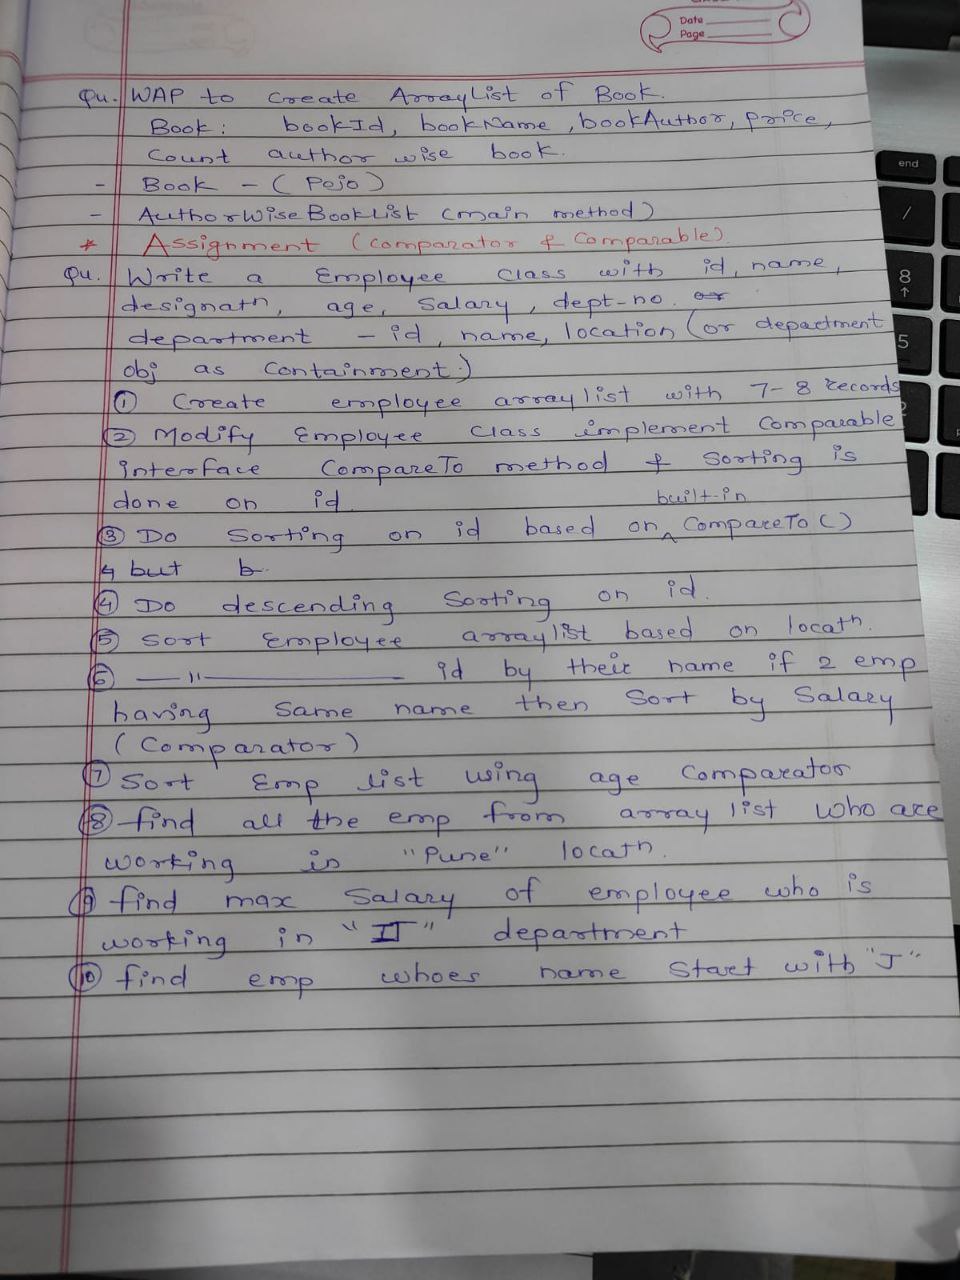 Date
Page
Qu. WAP to create ArrayList of Book.
Book : bookId, bookName, bookAuthor, price,
count author wise book.
- Book - (Pojo)
- AuthorWiseBookList (main method)
* Assignment (Comparator & Comparable)
Qu. Write a Employee class with id, name,
designatn, age, salary, dept-no. or
department - id, name, location (or department
obj as containment.)
① Create employee arraylist with 7-8 records
② Modify Employee class implement Comparable
interface CompareTo method & sorting is
done on id.
built-in
③ Do sorting on id based on ^ CompareTo ()
but b
④ Do descending sorting on id.
⑤ Sort Employee arraylist based on locatn.
⑥ —— " —————— id by their name if 2 emp
having same name then sort by salary
(Comparator)
⑦ Sort Emp list using age Comparator
⑧ find all the emp from array list who are
working in "Pune" locatn.
⑨ find max salary of employee who is
working in "IT" department
⑩ find emp whoes name start with "J"
end
/
8
↑
5